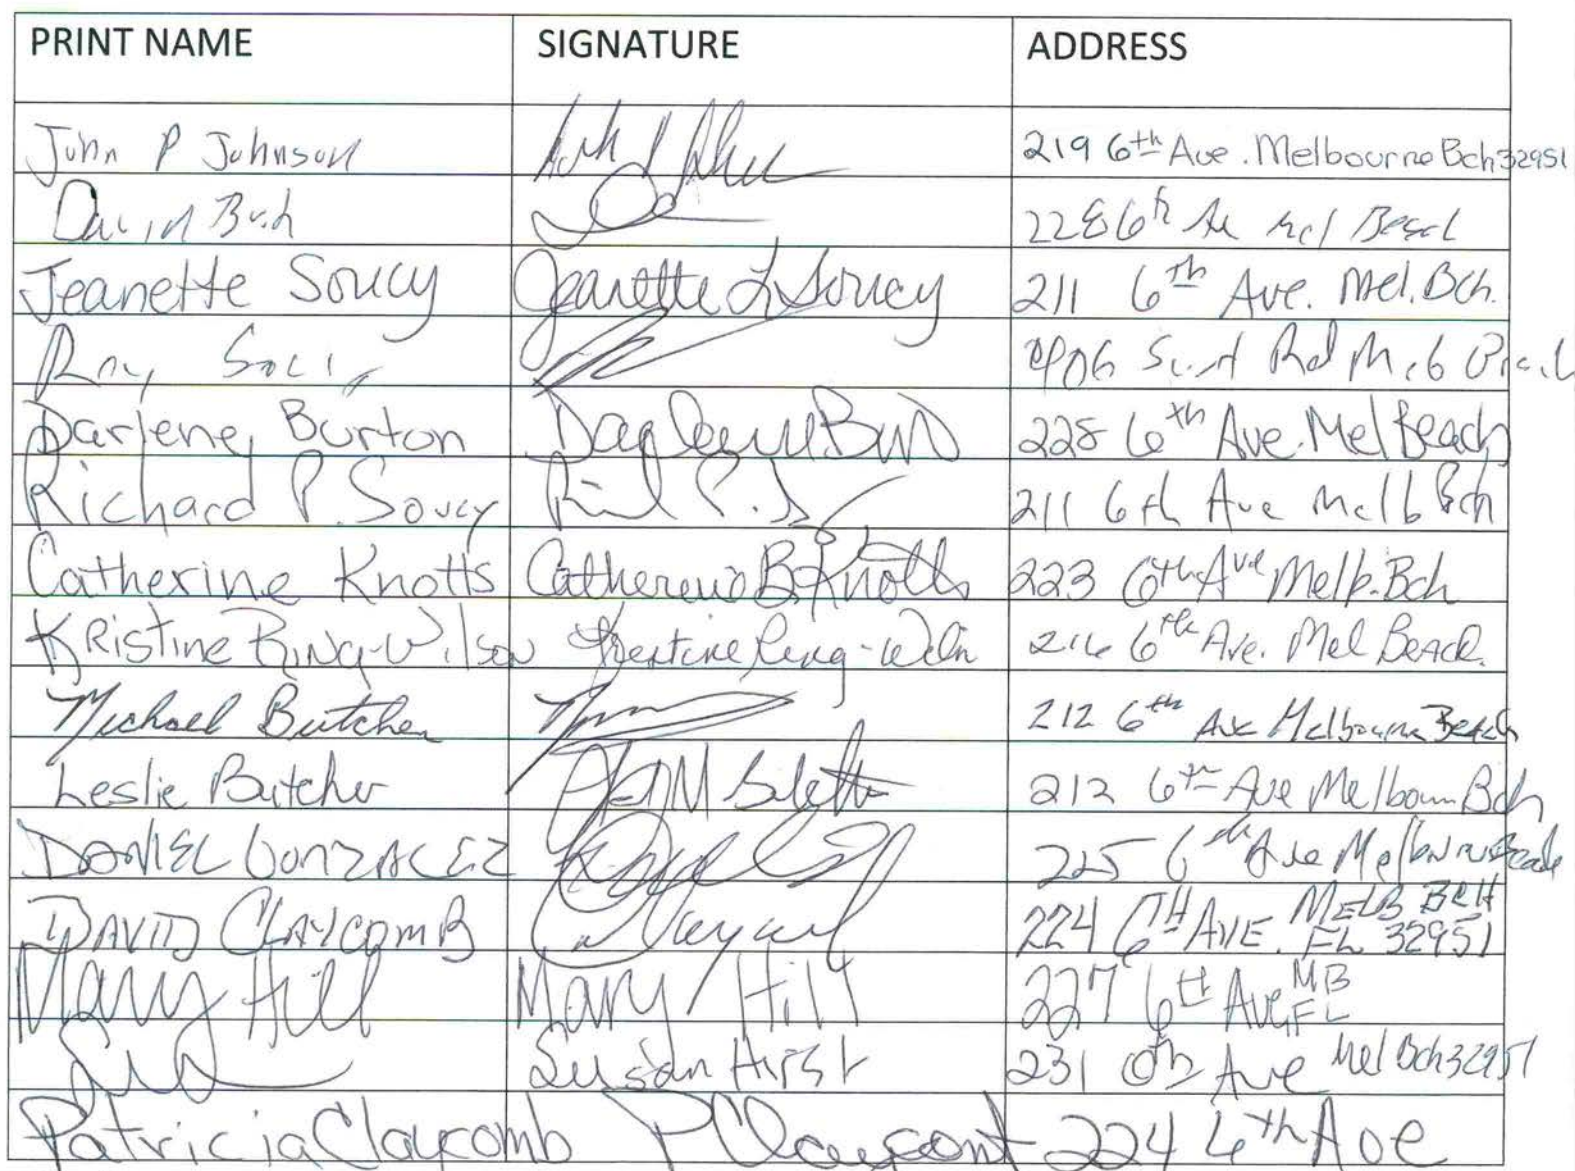 PRINT NAME SIGNATURE ADDRESS
John P Johnson 219 6th Ave. Melbourne Bch 32951
David 228 6th Ave Mel Beach
Jeanette Soucy Jeanette L Soucy 211 6th Ave. Mel. Bch.
Ray Rd
Darlene Burton 228 6th Ave. Mel Beach
Richard P. Soucy 211 6th Ave Melb Bch
Catherine Knotts Catherine B. Knotts 223 6th Ave Melb. Bch
Kristine Ring-Wilson Kristine Ring-Wilson 216 6th Ave. Mel Beach.
Michael Butcher 212 6th Ave Melbourne Beach
Leslie Butcher 212 6th Ave Melbourn Bch
DANIEL GONZALEZ 225 6th Ave Melbourne Beach
DAVID CLAYCOMB 224 6TH AVE. MELB BCH
FL 32951
Mary Hill Mary Hill 227 6th Ave MB
FL
Susan Hirst 231 6th Ave Mel Bch 32951
Patricia Claycomb P Claycomb 224 6th Ave